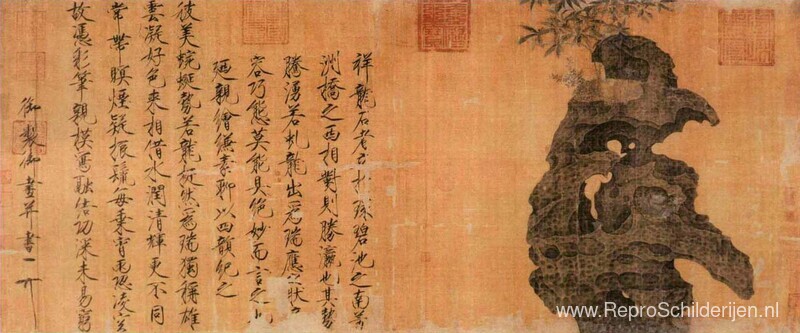 祥龍石者立於環碧池之南芳
洲橋之西相對則勝瀛也其勢
騰湧若虬龍出為瑞應之狀奇
容巧態莫能具絕妙而言之也
廼親繪縑素聊以四韻紀之
彼美蜿蜒勢若龍挺然為瑞獨稱雄
雲凝好色來相借水潤清輝更不同
常帶瞑煙疑振鬣每乘宵雨恐凌空
故憑彩筆親模寫融結功深未易窮
御製御畫并書
www.ReproSchilderijen.nl